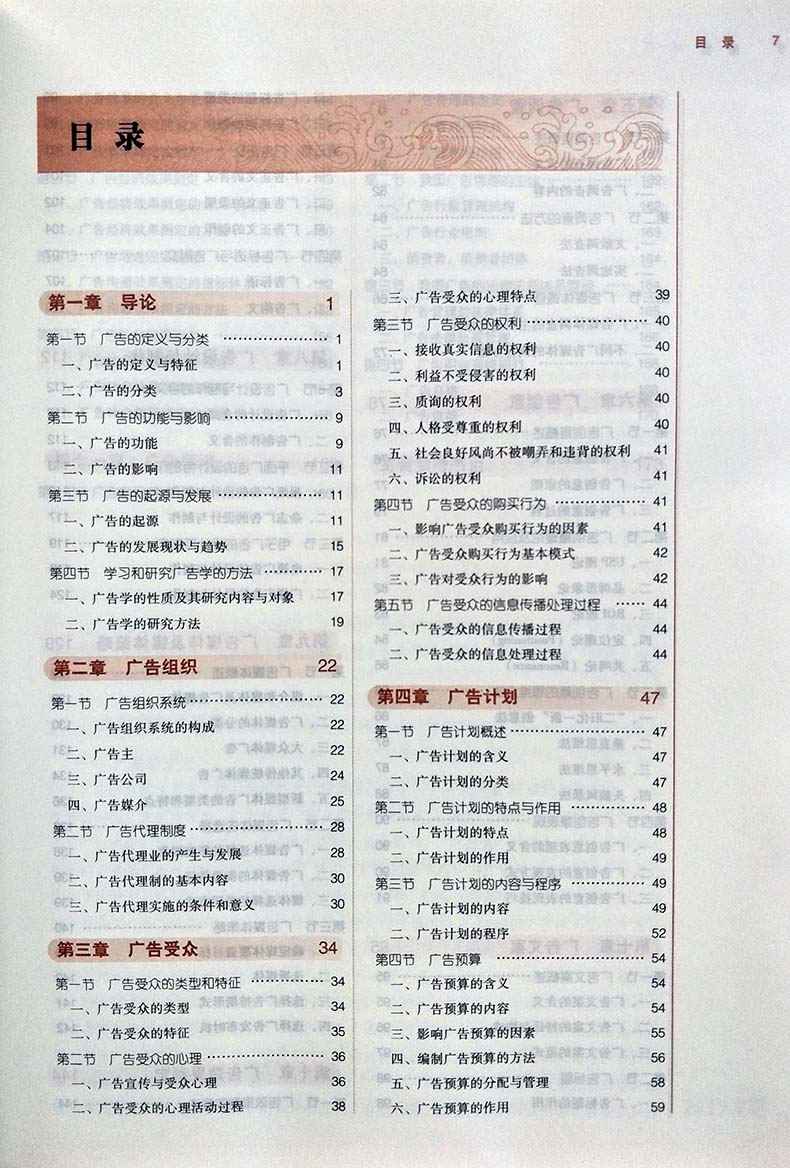 目录 7
目录
第一章 导论 1
第一节 广告的定义与分类 …… 1
一、广告的定义与特征 1
二、广告的分类 3
第二节 广告的功能与影响 …… 9
一、广告的功能 9
二、广告的影响 11
第三节 广告的起源与发展 …… 11
一、广告的起源 11
二、广告的发展现状与趋势 15
第四节 学习和研究广告学的方法 …… 17
一、广告学的性质及其研究内容与对象 17
二、广告学的研究方法 19
第二章 广告组织 22
第一节 广告组织系统 …… 22
一、广告组织系统的构成 22
二、广告主 22
三、广告公司 24
四、广告媒介 25
第二节 广告代理制度 …… 28
一、广告代理业的产生与发展 28
二、广告代理制的基本内容 30
三、广告代理实施的条件和意义 30
第三章 广告受众 34
第一节 广告受众的类型和特征 …… 34
一、广告受众的类型 34
二、广告受众的特征 35
第二节 广告受众的心理 …… 36
一、广告宣传与受众心理 36
二、广告受众的心理活动过程 38
三、广告受众的心理特点 39
第三节 广告受众的权利 …… 40
一、接收真实信息的权利 40
二、利益不受侵害的权利 40
三、质询的权利 40
四、人格受尊重的权利 40
五、社会良好风尚不被嘲弄和违背的权利 41
六、诉讼的权利 41
第四节 广告受众的购买行为 …… 41
一、影响广告受众购买行为的因素 41
二、广告受众购买行为基本模式 42
三、广告对受众行为的影响 42
第五节 广告受众的信息传播处理过程 …… 44
一、广告受众的信息传播过程 44
二、广告受众的信息处理过程 44
第四章 广告计划 47
第一节 广告计划概述 …… 47
一、广告计划的含义 47
二、广告计划的分类 47
第二节 广告计划的特点与作用 …… 48
一、广告计划的特点 48
二、广告计划的作用 49
第三节 广告计划的内容与程序 …… 49
一、广告计划的内容 49
二、广告计划的程序 52
第四节 广告预算 …… 54
一、广告预算的含义 54
二、广告预算的内容 54
三、影响广告预算的因素 55
四、编制广告预算的方法 56
五、广告预算的分配与管理 58
六、广告预算的作用 59